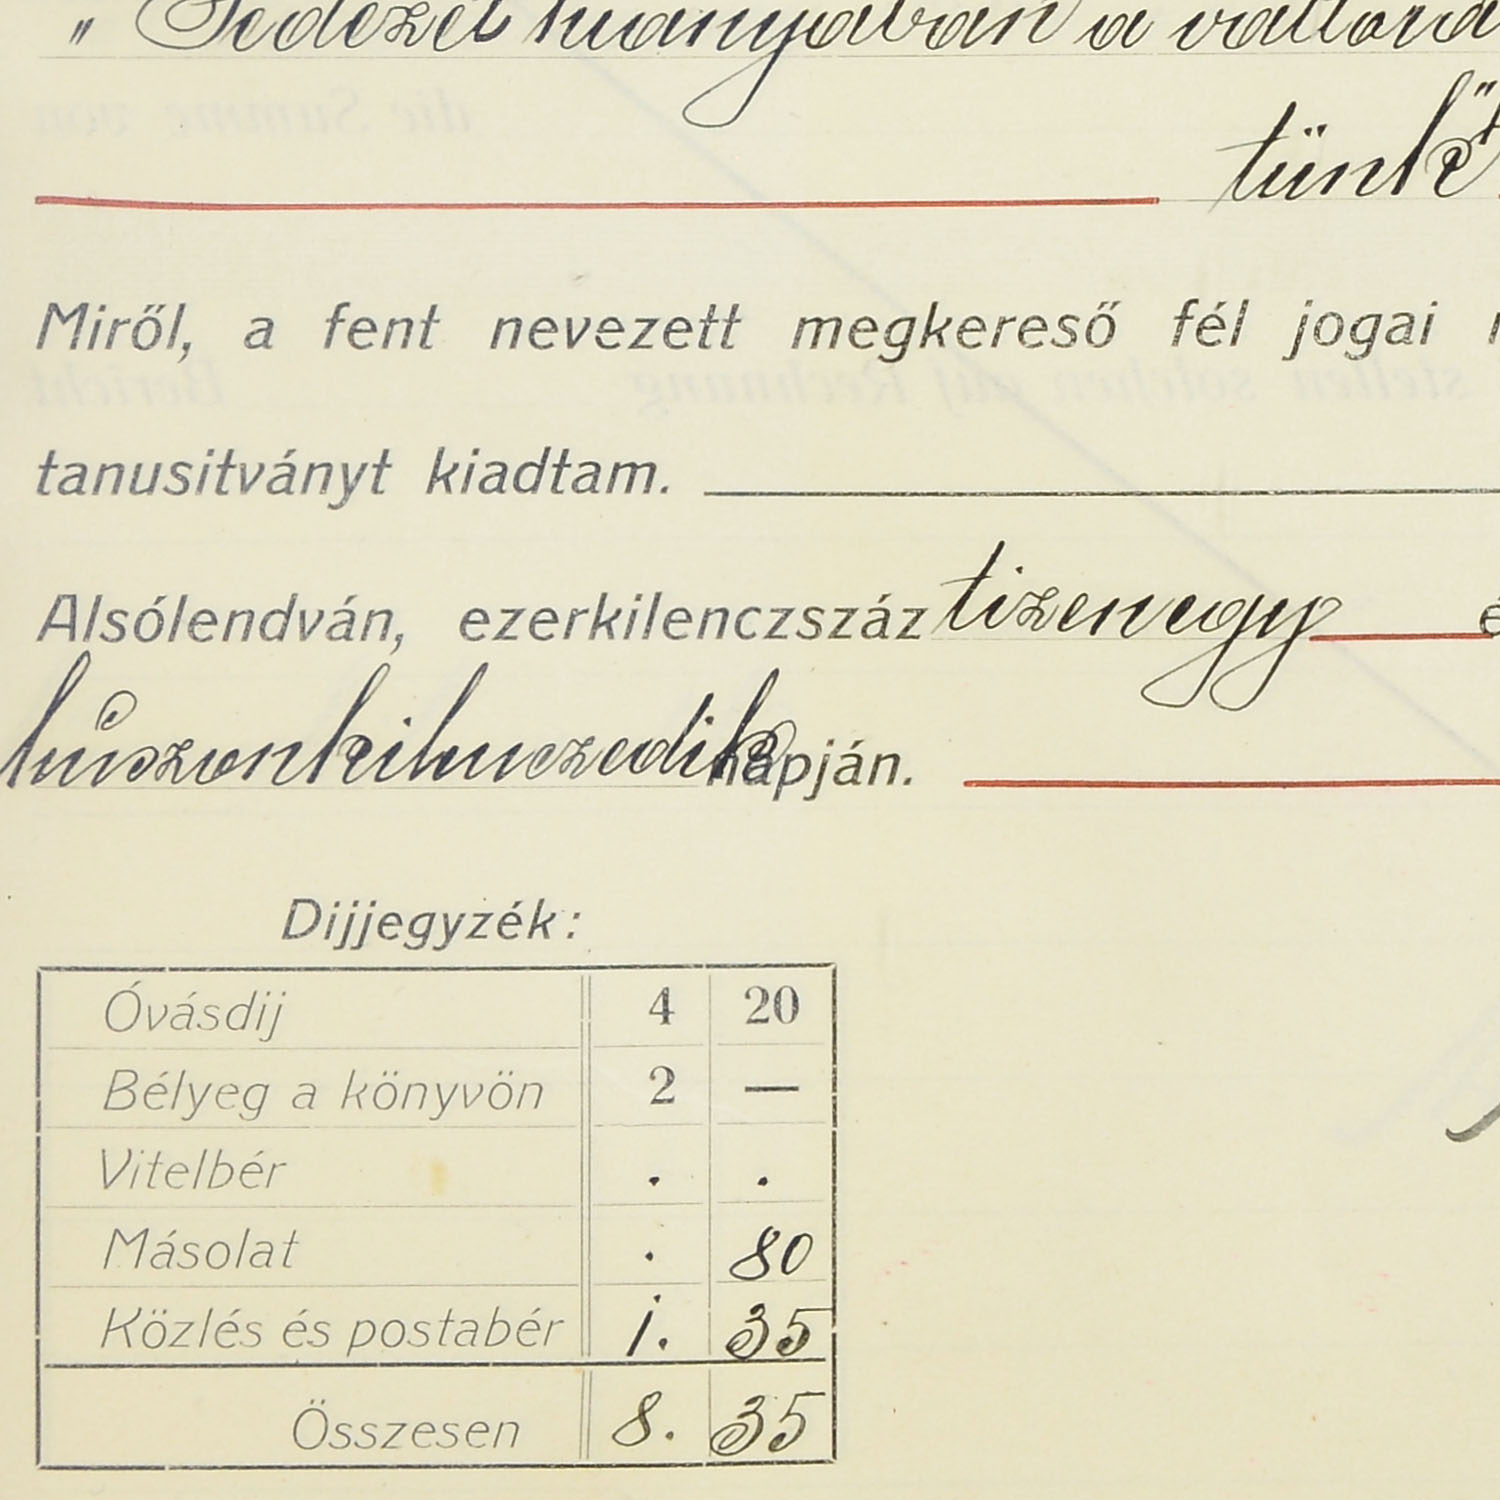 " Fedezet hiányában a váltóra
tünk"
Miről, a fent nevezett megkereső fél jogai
tanusitványt kiadtam.
Alsólendván, ezerkilenczszáz tizenegy é
húszonkilenczedik napján.
Dijjegyzék:
Óvásdij 4 20
Bélyeg a könyvön 2 —
Vitelbér . .
Másolat . 80
Közlés és postabér 1. 35
Összesen 8. 35